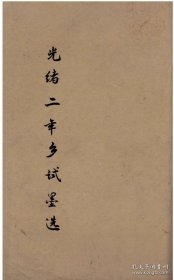 光绪二年乡试墨选